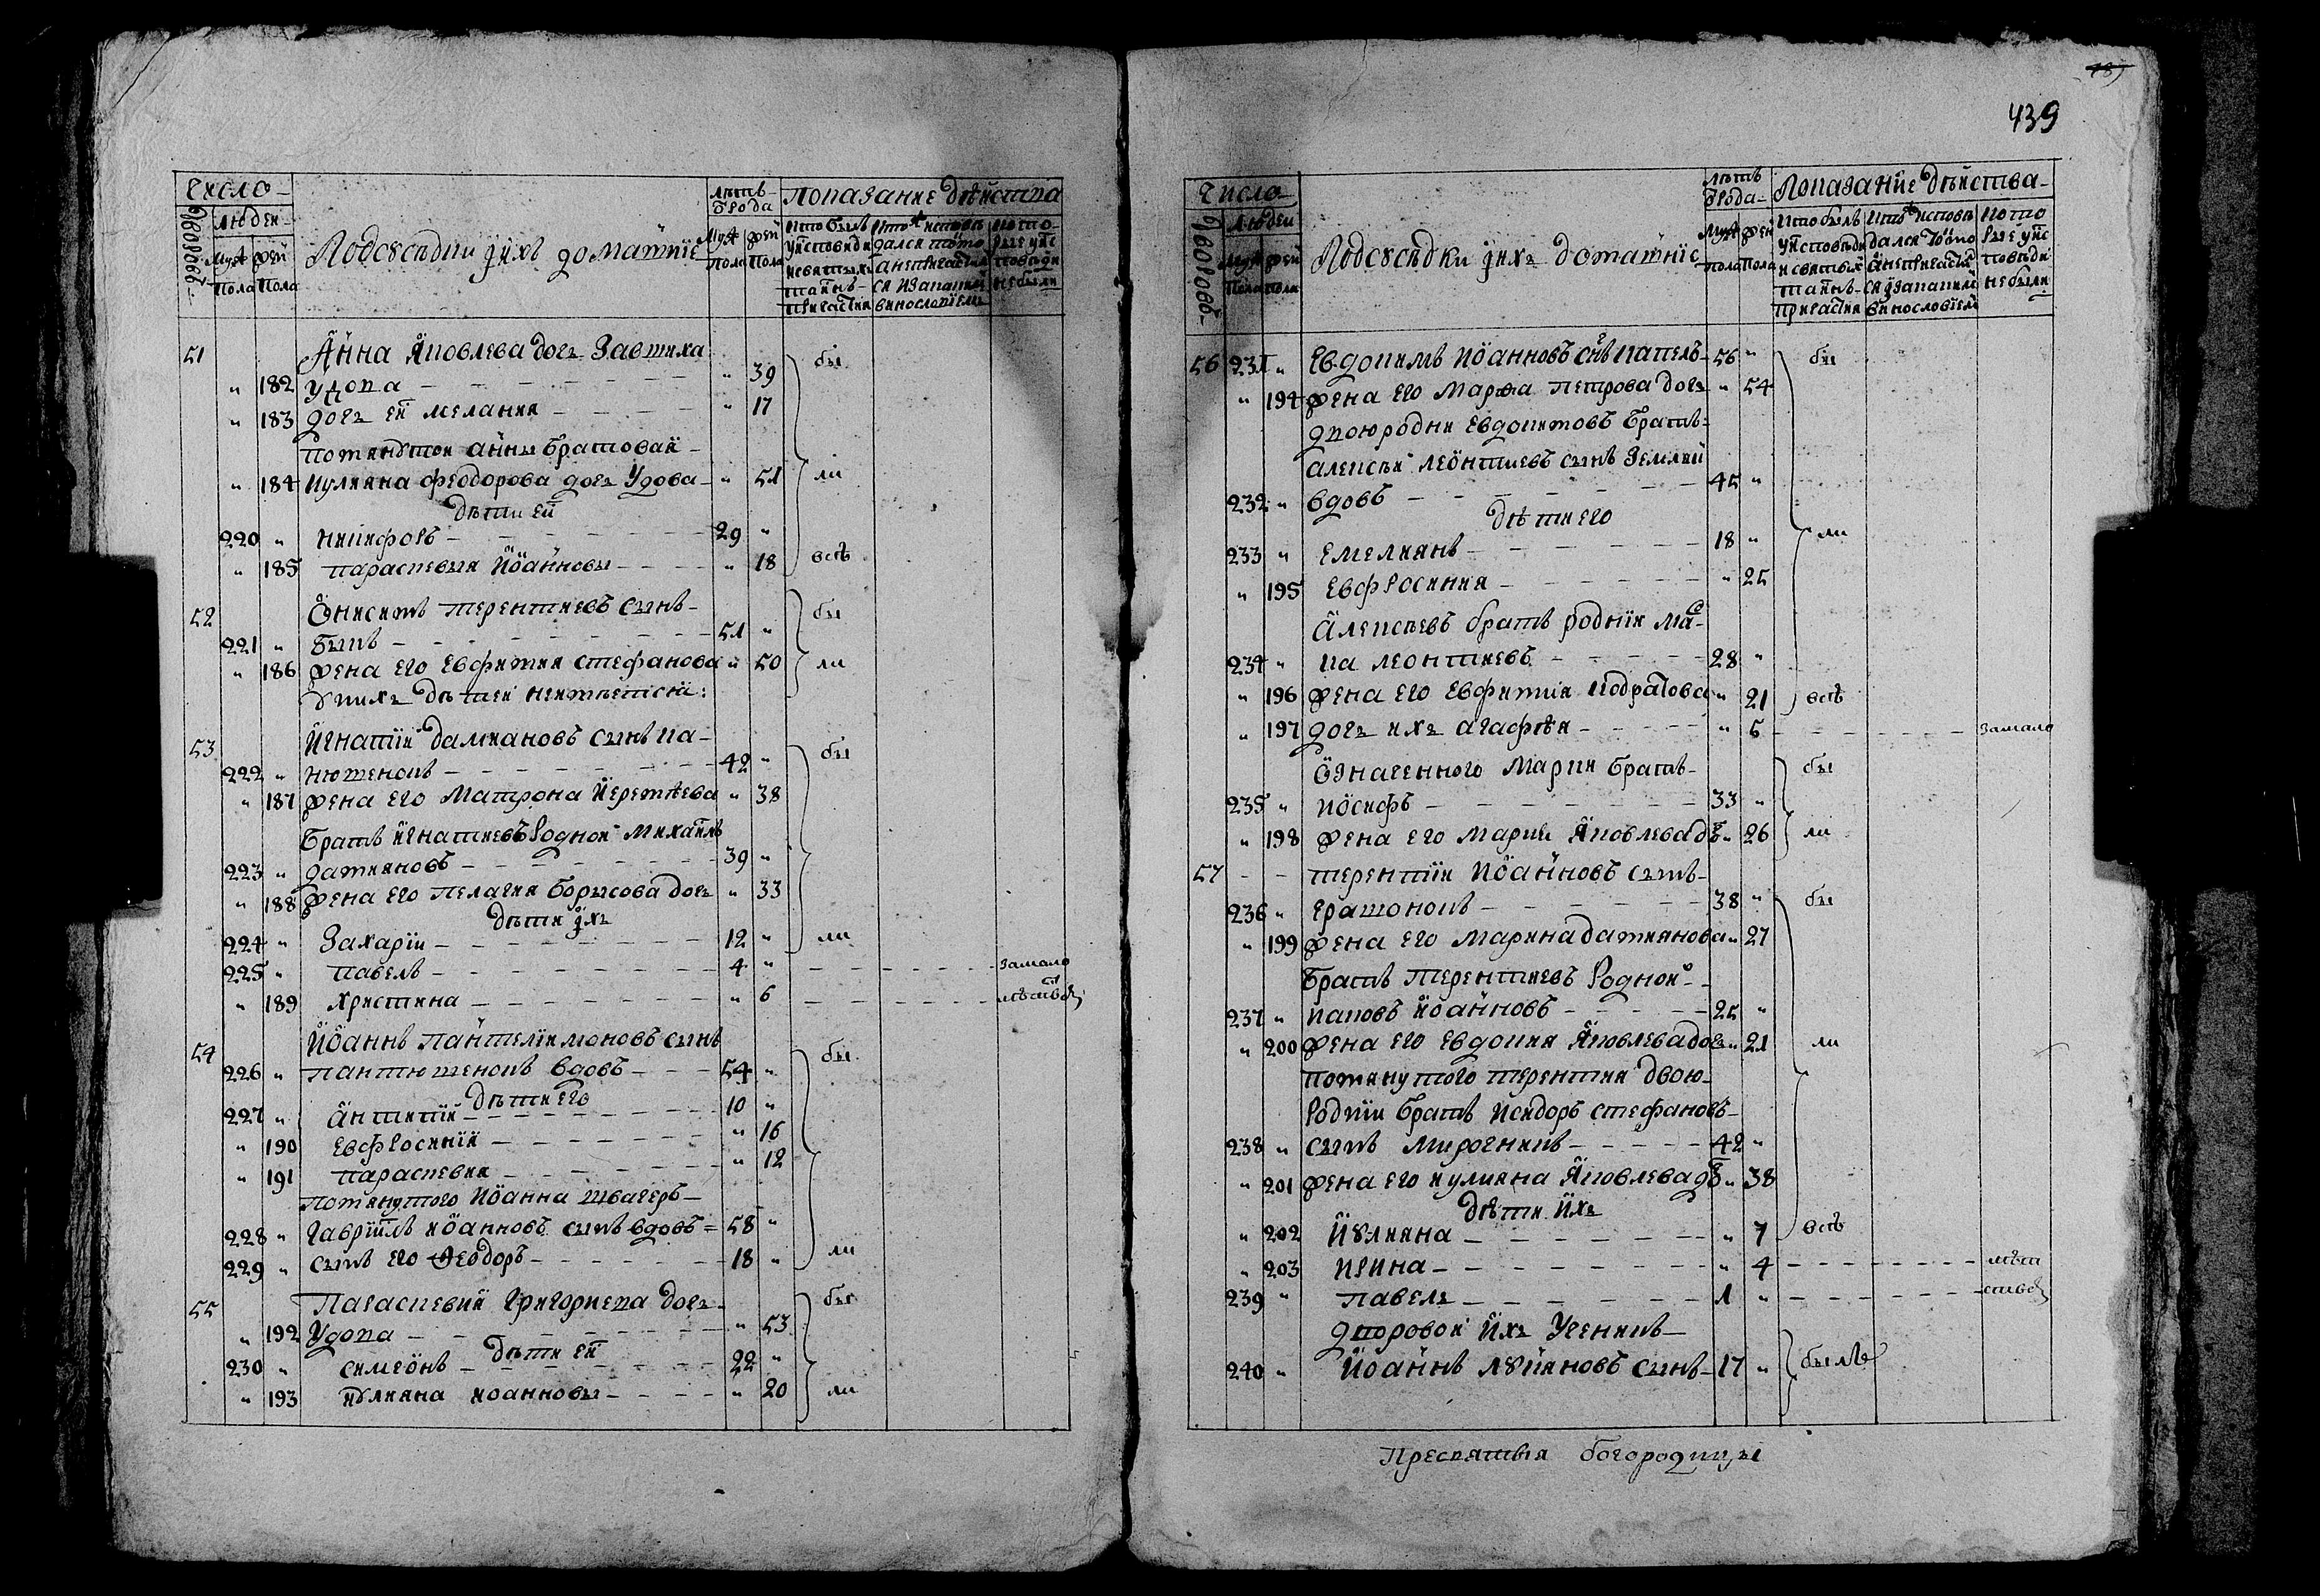 Число
Дворовъ
Людей
Муж Жен
Пола Пола
Подсусѣдки ихъ домашніе
Лѣтъ
ѿ рода
Муж Жен
Пола Пола
Показание дѣйства
Кто былъ у исповѣди и святыхъ таинъ причастия
Кто ж исповѣдался токмо а не причастился и за какимъ винословіемъ
Кто же у исповѣди не были
51 Анна Яковлева дочь Завтиха
" 182 удова " 39 бы
" 183 дочь ей Мелания " 17
Помянутой Анны братовая
" 184 Иулияна Феодорова дочь Удова " 51 ли
Дѣти ей
220 " Никифоръ 29 "
" 185 Параскевия Иоанновы " 18 всѣ
52 Онисимъ Терентиевъ сынъ
221 " Быкъ 51 " бы
" 186 Жена его Евфимия Стефанова " 50 ли
У нихъ дѣтей неимѣется:
53 Игнатій Дамиановъ сынъ Ка-
222 " нюшенокъ 42 " бы
" 187 Жена его Матрона Иеремѣева " 38
Братъ Игнатиевъ Родной Михаилъ
223 " Дамияновъ 39 "
" 188 Жена его Пелагия Борысова дочь " 33
Дѣти ихъ
224 " Захарій 12 " ли
225 " Павелъ 4 " замало
" 189 Христина " 6 лѣтствомъ
54 Иоаннъ Пантелиимоновъ сынъ
226 " Пантюшенокъ вдовъ 54 " бы
Дѣти его
227 " Антипій 10 "
" 190 Евфросинія " 16
" 191 Параскевия " 12
Помянутого Иоанна швагеръ
228 " Гавріилъ Иоанновъ сынъ вдовъ 58 "
229 " Сынъ его Ѳеодоръ 18 " ли
55 Параскевия Григориева дочь
" 192 Удова " 53 бы
Дѣти ей
230 " Симеонъ 22 "
" 193 Иулияна Иоанновы " 20 ли
439
Число
Дворовъ
Людей
Муж Жен
Пола Пола
Подсусѣдки ихъ домашніе
Лѣтъ
ѿ рода
Муж Жен
Пола Пола
Показаніе дѣиства
Кто былъ у исповѣди и святыхъ таинъ причастия
Кто ж исповѣдался токмо а не причастился и за какимъ винословіемъ
Кто же у исповѣди не были
56 231 " Евдокимъ Иоанновъ снъ Капелъ 56 " бы
" 194 Жена его Марѳа Петрова дочь " 54
Двоюродни Евдокимовъ Братъ
Алексѣй Леонтиевъ сынъ Землян
232 " вдовъ 45 "
Дѣти его
233 " Емелиянъ 18 " ли
" 195 Евфросиния " 25
Алексѣевъ братъ родній Ма
234 " ка Леонтиевъ 28 "
" 196 Жена его Евфимия Кодратова " 21 всѣ
" 197 дочь ихъ Агафия " 6 замало
Означенного Марки братъ
235 " Иосифъ 33 " бы
" 198 Жена его Мария Яковлева дч " 26 ли
57 Терентій Иоанновъ сынъ
236 " Ерашонокъ 38 " бы
" 199 Жена его Марина Дамиянова " 27
Братъ Терентиевъ Родной
237 " Иаковъ Иоанновъ 25 "
" 200 Жена его Евдокия Яковлева дочь " 21 ли
Помянутого Терентия двою-
родній братъ Исидоръ Стефановъ
238 " сынъ Мирочникъ 42 "
" 201 Жена его Иулияна Яковлева дч " 38
Дѣти Ихъ
" 202 Иулияна " 7 всѣ
" 203 Ирина " 4 лѣт
239 " Павелъ 1 " ствомъ
Дворовой Ихъ Ученикъ
240 " Иоаннъ Лукяновъ сынъ 17 " былъ
Пресвятыя Богородицы